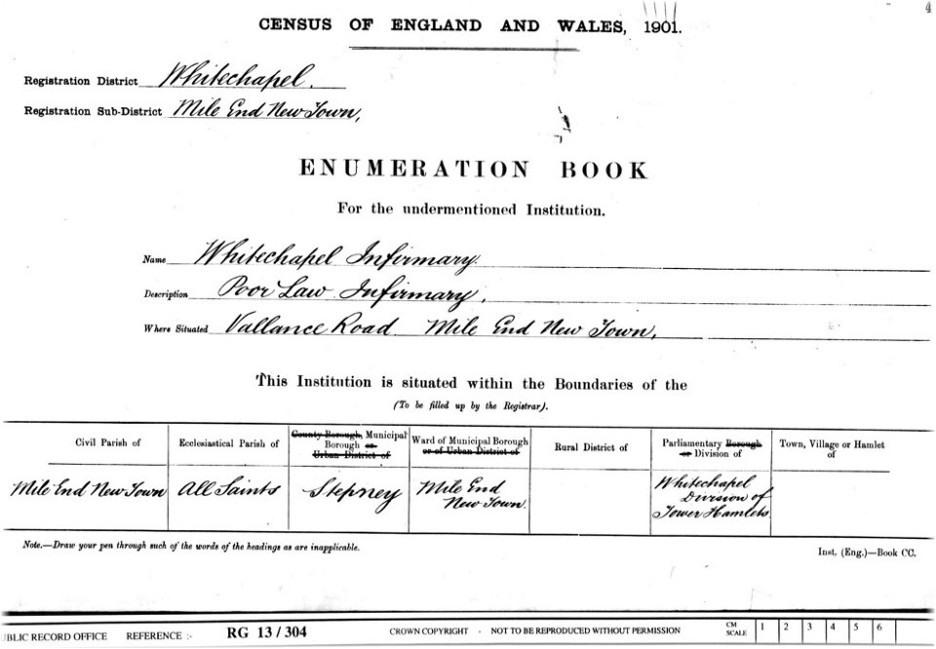 4
CENSUS OF ENGLAND AND WALES, 1901.
Registration District Whitechapel.
Registration Sub-District Mile End New Town,
ENUMERATION BOOK
For the undermentioned Institution.
Name Whitechapel Infirmary.
Description Poor Law Infirmary.
Where Situated Vallance Road Mile End New Town,
This Institution is situated within the Boundaries of the
(To be filled up by the Registrar).
Civil Parish of
Ecclesiastical Parish of
County Borough, Municipal
Borough or
Urban District of
Ward of Municipal Borough
or of Urban District of
Rural District of
Parliamentary Borough
or Division of
Town, Village or Hamlet
of
Mile End New Town
All Saints
Stepney
Mile End
New Town.
Whitechapel
Division of
Tower Hamlets
Note.—Draw your pen through such of the words of the headings as are inapplicable.
Inst. (Eng.)—Book CC.
UBLIC RECORD OFFICE REFERENCE :- RG 13 / 304 CROWN COPYRIGHT - NOT TO BE REPRODUCED WITHOUT PERMISSION CM SCALE 1 2 3 4 5 6